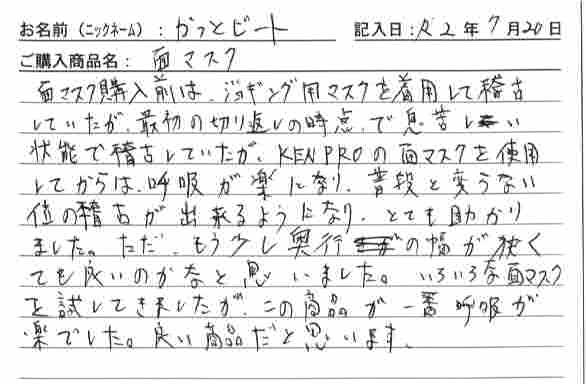 お名前（ニックネーム）：がっとビート 記入日：R2年7月20日
ご購入商品名：面マスク
面マスク購入前は、ジョギング用マスクを着用して稽古
していたが、最初の切り返しの時点で息苦しい
状態で稽古していたが、KENPROの面マスクを使用
してからは、呼吸が楽になり、普段と変らない
位の稽古が出来るようになり、とても助かり
ました。ただ、もう少し奥行の幅が狭く
ても良いのかなと思いました。いろいろな面マスク
を試してきましたが、この商品が一番呼吸が
楽でした。良い商品だと思います。